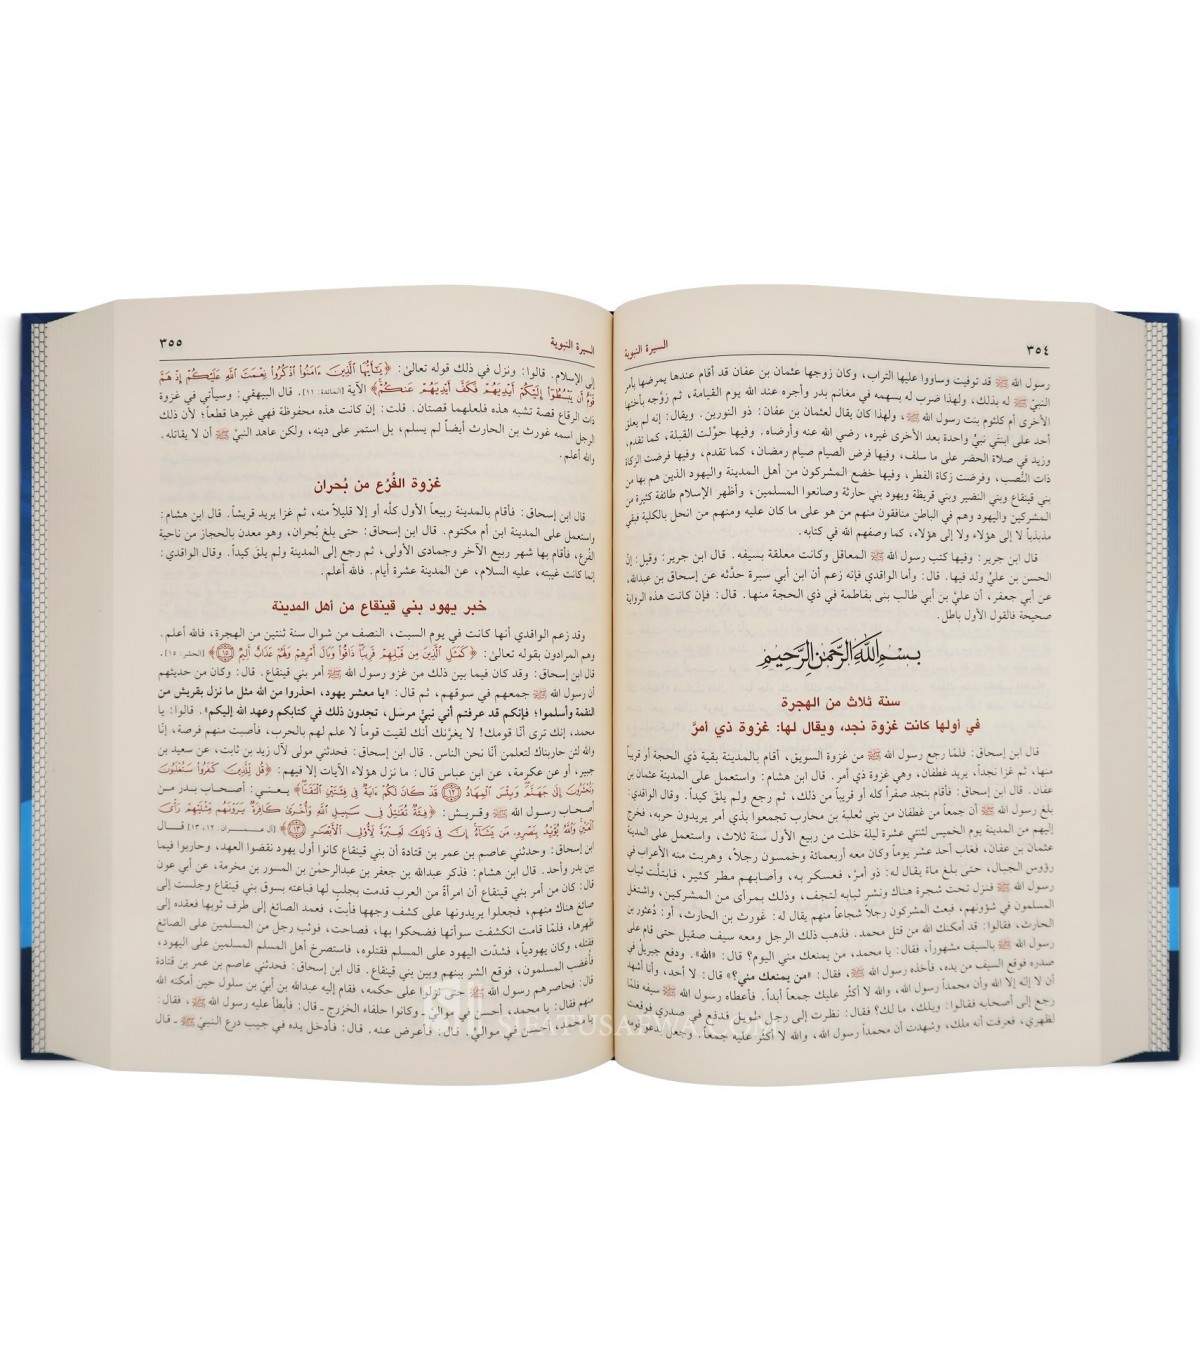 ٣٥٤
السيرة النبوية
رسول الله ﷺ قد توفيت وساووا عليها التراب، وكان زوجها عثمان بن عفان قد أقام عندها يمرضها بأمر
النبيّ ﷺ له بذلك، ولهذا ضرب له بسهمه في مغانم بدر وأجره عند الله يوم القيامة، ثم زوَّجه بأختها
الأخرى أم كلثوم بنت رسول الله ﷺ، ولهذا كان يقال لعثمان بن عفان: ذو النورين. ويقال: إنه لم يغلق
أحد على ابنتي نبيٍّ واحدة بعد الأخرى غيره، رضي الله عنه وأرضاه. وفيها حوّلت القبلة، كما تقدم،
وزيد في صلاة الحضر على ما سلف، وفيها فرض الصيام صيام رمضان، كما تقدم، وفيها فرضت الزكاة
ذات النُّصب، وفرضت زكاة الفطر، وفيها خضع المشركون من أهل المدينة واليهود الذين هم بها من
بني قينقاع وبني النضير وبني قريظة ويهود بني حارثة وصانعوا المسلمين، وأظهر الإسلام طائفة كثيرة من
المشركين واليهود وهم في الباطن منافقون منهم من هو على ما كان عليه ومنهم من انحل بالكلية فبقي
مذبذباً لا إلى هؤلاء ولا إلى هؤلاء، كما وصفهم الله في كتابه.
قال ابن جرير: وفيها كتب رسول الله ﷺ المعاقل وكانت معلقة بسيفه. قال ابن جرير: وقيل: إنّ
الحسن بن عليٍّ ولد فيها. قال: وأما الواقدي فإنه زعم أن ابن أبي سبرة حدَّثه عن إسحاق بن عبدالله،
عن أبي جعفر، أن عليَّ بن أبي طالب بنى بفاطمة في ذي الحجة منها. قال: فإن كانت هذه الرواية
صحيحة فالقول الأول باطل.
بسم الله الرحمن الرحيم
سنة ثلاث من الهجرة
في أولها كانت غزوة نجد، ويقال لها: غزوة ذي أمرَّ
قال ابن إسحاق: فلمّا رجع رسول الله ﷺ من غزوة السويق، أقام بالمدينة بقية ذي الحجة أو قريباً
منها، ثم غزا نجداً، يريد غطفان، وهي غزوة ذي أمر. قال ابن هشام: واستعمل على المدينة عثمان بن
عفان. قال ابن إسحاق: فأقام بنجد صفراً كله أو قريباً من ذلك، ثم رجع ولم يلق كيداً. وقال الواقدي:
بلغ رسول الله ﷺ أن جمعاً من غطفان من بني ثعلبة بن محارب تجمعوا بذي أمر يريدون حربه، فخرج
إليهم من المدينة يوم الخميس لثنتي عشرة ليلة خلت من ربيع الأول سنة ثلاث، واستعمل على المدينة
عثمان بن عفان، فغاب أحد عشر يوماً وكان معه أربعمائة وخمسون رجلاً، وهربت منه الأعراب في
رؤوس الجبال، حتى بلغ ماءً يقال له: ذو أمرّ، فعسكر به، وأصابهم مطر كثير، فابتلّت ثياب
رسول الله ﷺ فنزل تحت شجرة هناك ونشر ثيابه لتجف، وذلك بمرأى من المشركين، واشتغل
المسلمون في شؤونهم، فبعث المشركون رجلاً شجاعاً منهم يقال له: غَورث بن الحارث، أو: دُعثور بن
الحارث، فقالوا: قد أمكنك الله من قتل محمد. فذهب ذلك الرجل ومعه سيف صقيل حتى قام على
رسول الله ﷺ بالسيف مشهوراً، فقال: يا محمد، من يمنعك مني اليوم؟ قال: «الله». ودفع جبريلُ في
صدره فوقع السيف من يده، فأخذه رسول الله ﷺ، فقال: «من يمنعك مني؟» قال: لا أحد، وأنا أشهد
أن لا إله إلا الله وأن محمداً رسول الله، والله لا أكثّر عليك جمعاً أبداً. فأعطاه رسول الله ﷺ سيفه فلمّا
رجع إلى أصحابه فقالوا: ويلك، ما لك؟ فقال: نظرت إلى رجل طويل فدفع في صدري فوقعت
لظهري، فعرفت أنه ملك، وشهدت أن محمداً رسول الله، والله لا أكثّر عليه جمعاً. وجعل يدعو قومه
السيرة النبوية
٣٥٥
إلى الإسلام. قالوا: ونزل في ذلك قوله تعالى: ﴿يَٰٓأَيُّهَا ٱلَّذِينَ ءَامَنُوا۟ ٱذْكُرُوا۟ نِعْمَتَ ٱللَّهِ عَلَيْكُمْ إِذْ هَمَّ
قَوْمٌ أَن يَبْسُطُوٓا۟ إِلَيْكُمْ أَيْدِيَهُمْ فَكَفَّ أَيْدِيَهُمْ عَنكُمْ﴾ الآية [المائدة: ١١]. قال البيهقي: وسيأتي في غزوة
ذات الرقاع قصة تشبه هذه فلعلهما قصتان. قلت: إن كانت هذه محفوظة فهي غيرها قطعاً؛ لأن ذلك
الرجل اسمه غورث بن الحارث أيضاً لم يسلم، بل استمر على دينه، ولكن عاهد النبيّ ﷺ أن لا يقاتله.
والله أعلم.
غزوة الفُرُع من بُحران
قال ابن إسحاق: فأقام بالمدينة ربيعاً الأول كلّه أو إلا قليلاً منه، ثم غزا يريد قريشاً. قال ابن هشام:
واستعمل على المدينة ابن أم مكتوم. قال ابن إسحاق: حتى بلغ بُحران، وهو معدن بالحجاز من ناحية
الفُرع، فأقام بها شهر ربيع الآخر وجمادى الأولى، ثم رجع إلى المدينة ولم يلق كيداً. وقال الواقدي:
إنما كانت غيبته، عليه السلام، عن المدينة عشرة أيام. فالله أعلم.
خبر يهود بني قينقاع من أهل المدينة
وقد زعم الواقدي أنها كانت في يوم السبت، النصف من شوال سنة ثنتين من الهجرة، فالله أعلم.
وهم المرادون بقوله تعالى: ﴿كَمَثَلِ ٱلَّذِينَ مِن قَبْلِهِمْ قَرِيبًا ذَاقُوا۟ وَبَالَ أَمْرِهِمْ وَلَهُمْ عَذَابٌ أَلِيمٌ ١٥﴾ [الحشر: ١٥].
قال ابن إسحاق: وقد كان فيما بين ذلك من غزو رسول الله ﷺ أمر بني قينقاع. قال: وكان من حديثهم
أن رسول الله ﷺ جمعهم في سوقهم، ثم قال: «يا معشر يهود، احذروا من الله مثل ما نزل بقريش من
النقمة وأسلموا؛ فإنكم قد عرفتم أني نبيٌّ مرسَل، تجدون ذلك في كتابكم وعهد الله إليكم». قالوا: يا
محمد، إنك ترى أنّا قومك! لا يغرّنك أنك لقيت قوماً لا علم لهم بالحرب، فأصبت منهم فرصة، إنّا
والله لئن حاربناك لتعلمن أنّا نحن الناس. قال ابن إسحاق: فحدثني مولى لآل زيد بن ثابت، عن سعيد بن
جبير، أو عن عكرمة، عن ابن عباس قال: ما نزل هؤلاء الآيات إلا فيهم: ﴿قُل لِّلَّذِينَ كَفَرُوا۟ سَتُغْلَبُونَ
وَتُحْشَرُونَ إِلَىٰ جَهَنَّمَ وَبِئْسَ ٱلْمِهَادُ ١٢ قَدْ كَانَ لَكُمْ ءَايَةٌ فِى فِئَتَيْنِ ٱلْتَقَتَا﴾ يعني: أصحاب بدر من
أصحاب رسول الله ﷺ وقريش: ﴿فِئَةٌ تُقَٰتِلُ فِى سَبِيلِ ٱللَّهِ وَأُخْرَىٰ كَافِرَةٌ يَرَوْنَهُم مِّثْلَيْهِمْ رَأْىَ
ٱلْعَيْنِ وَٱللَّهُ يُؤَيِّدُ بِنَصْرِهِۦ مَن يَشَآءُ إِنَّ فِى ذَٰلِكَ لَعِبْرَةً لِّأُو۟لِى ٱلْأَبْصَٰرِ ١٣﴾ [آل عمران: ١٢، ١٣] قال
ابن إسحاق: وحدثني عاصم بن عمر بن قتادة أن بني قينقاع كانوا أول يهود نقضوا العهد، وحاربوا فيما
بين بدر وأحد. قال ابن هشام: فذكر عبدالله بن جعفر بن عبدالرحمٰن بن المسور بن مخرمة، عن أبي عون
قال: كان من أمر بني قينقاع أن امرأة من العرب قدمت بجلبٍ لها فباعته بسوق بني قينقاع وجلست إلى
صائغ هناك منهم، فجعلوا يريدونها على كشف وجهها فأبت، فعمد الصائغ إلى طرف ثوبها فعقده إلى
ظهرها، فلمّا قامت انكشفت سوأتها فضحكوا بها، فصاحت، فوثب رجل من المسلمين على الصائغ
فقتله، وكان يهودياً، فشدّت اليهود على المسلم فقتلوه، فاستصرخ أهل المسلم المسلمين على اليهود،
فأغضب المسلمون، فوقع الشر بينهم وبين بني قينقاع. قال ابن إسحاق: فحدثني عاصم بن عمر بن قتادة
قال: فحاصرهم رسول الله ﷺ حتى نزلوا على حكمه، فقام إليه عبدالله بن أبيّ بن سلول حين أمكنه الله
منهم فقال: يا محمد، أحسن في مواليّ. وكانوا حلفاء الخزرج ـ قال: فأبطأ عليه رسول الله ﷺ، فقال:
يا محمد، أحسن في مواليّ. قال: فأعرض عنه. قال: فأدخل يده في جيب درع النبيّ ﷺ ـ قال
SIFATUSAFWA.COM